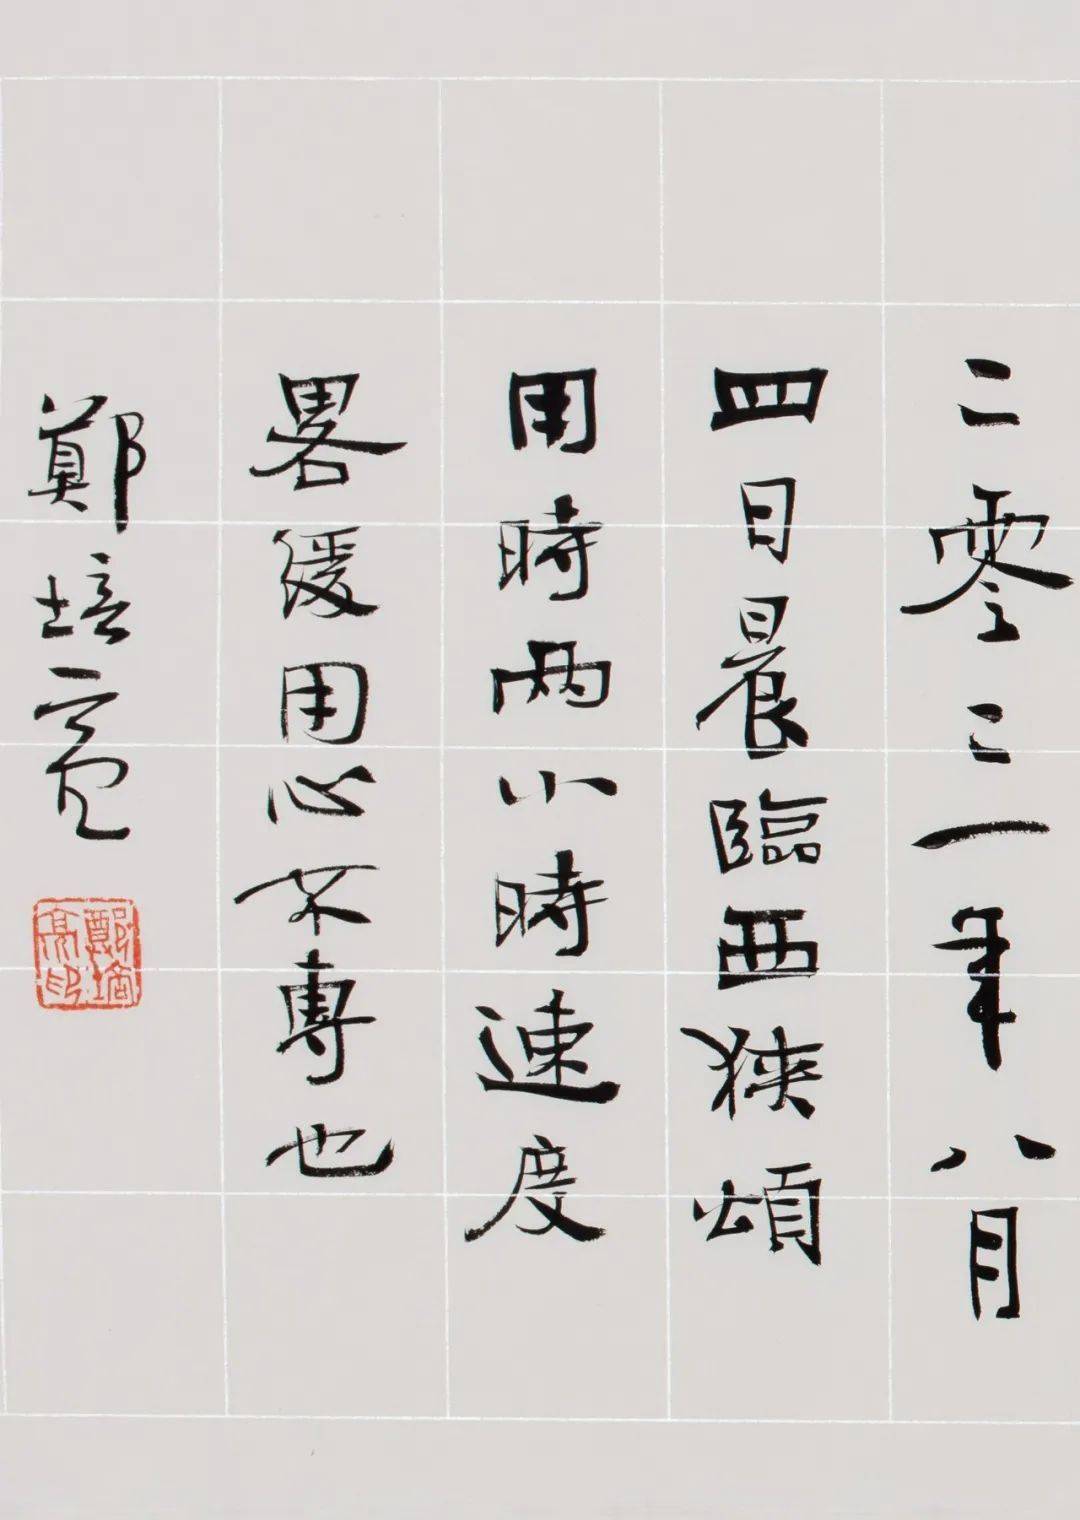 二零二一年八月
四日晨臨西狹頌
用時两小時速度
畧緩用心不專也
鄭培亮
鄭培亮印